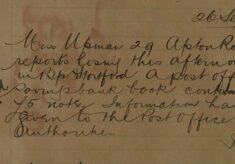 26
Miss Upman 29 Apton Ro
reports losing this afternoo
in Bp Stortford A post off
savings bank book contain
£5 note, Information has
given to the Post Office
Authorities